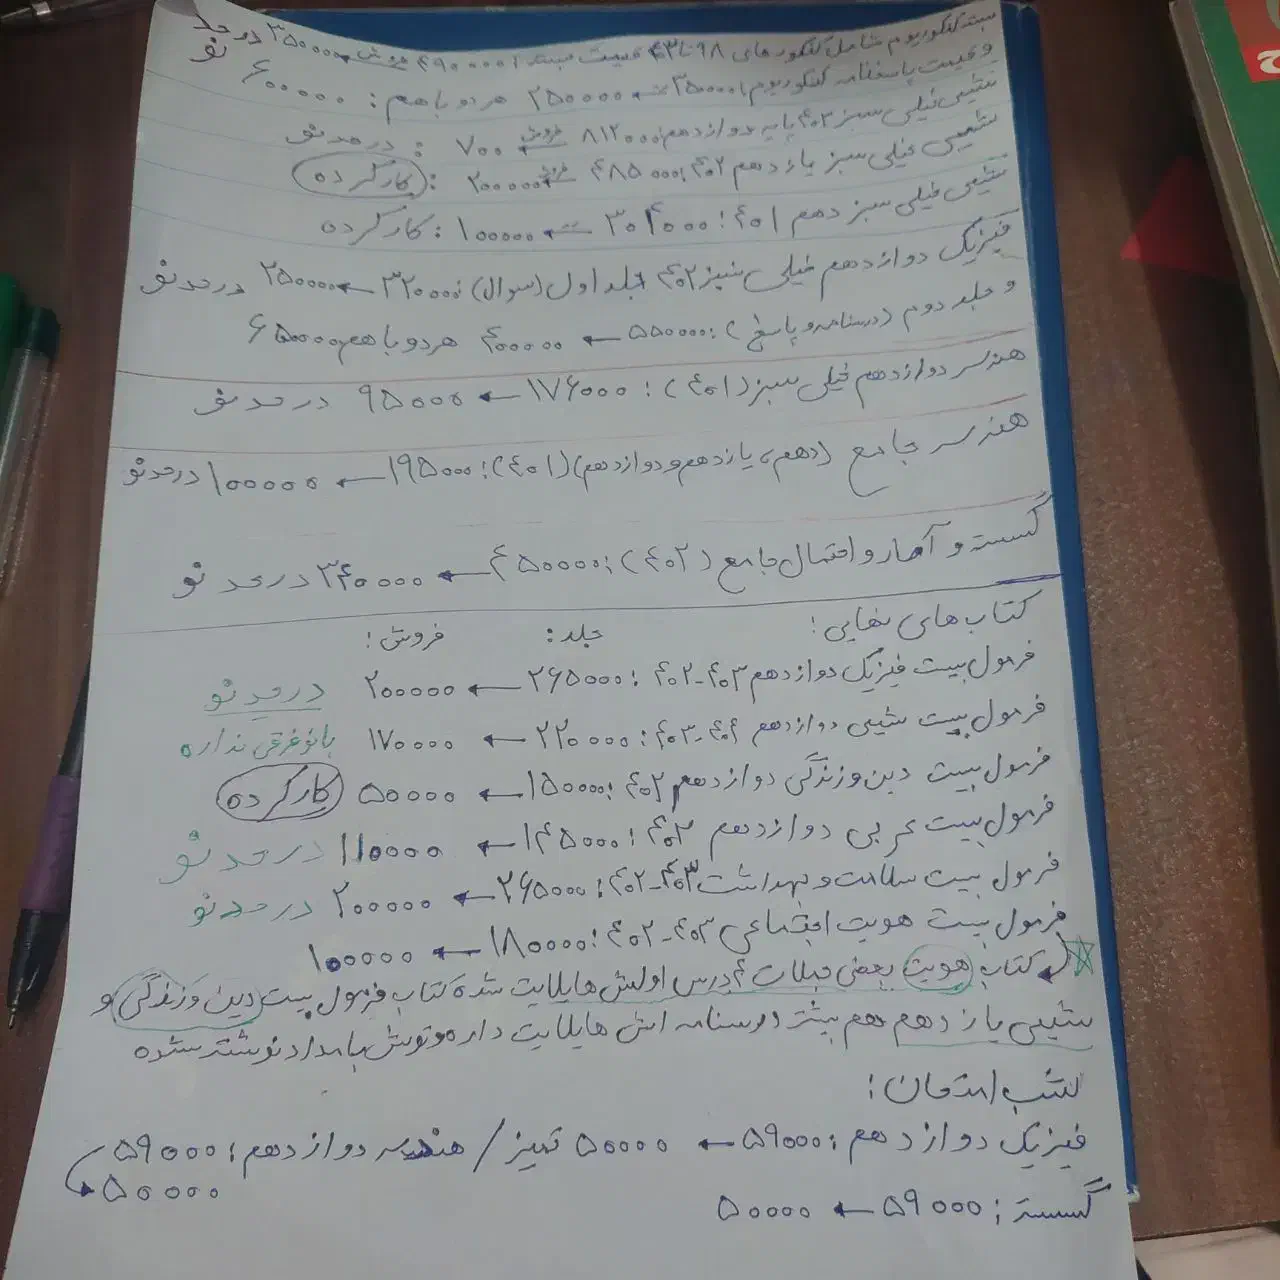 بسته کنکوریوم شامل کنکورهای ۹۸ تا ۴۰۳ قیمت پسته: ۴۹۰۰۰۰ فروش ← ۳۵۰۰۰۰ در حد نو
و قیمت پاسخنامه کنکوریوم: ۳۵۰۰۰۰ ← ۲۵۰۰۰۰ هر دو باهم: ۶۰۰۰۰۰
شیمی خیلی سبز ۴۰۳ پایه دوازدهم: ۸۱۲۰۰۰ فروش ← ۷۰۰ : در حد نو
شیمی خیلی سبز یازدهم ۴۰۲: ۴۸۵۰۰۰ فروش ← ۲۰۰۰۰۰ : کارکرده
شیمی خیلی سبز دهم ۴۰۱: ۳۰۴۰۰۰ ← ۱۰۰۰۰۰ : کارکرده
فیزیک دوازدهم خیلی سبز ۴۰۲ جلد اول (سوال): ۳۲۰۰۰۰ ← ۲۵۰۰۰۰ در حد نو
و جلد دوم (درسنامه و پاسخ): ۵۵۰۰۰۰ ← ۴۰۰۰۰۰ هر دو با هم: ۶۵۰۰۰۰
هندسه دوازدهم خیلی سبز (۴۰۱): ۱۷۶۰۰۰ ← ۹۵۰۰۰ در حد نو
هندسه جامع (دهم، یازدهم و دوازدهم)(۴۰۱): ۱۹۵۰۰۰ ← ۱۰۰۰۰۰ در حد نو
گسسته و آمار و احتمال جامع (۴۰۲): ۴۵۰۰۰۰ ← ۳۴۰۰۰۰ در حد نو
کتاب های نهایی: جلد: فروش:
فرمول بیست فیزیک دوازدهم ۴۰۳-۴۰۲: ۲۶۵۰۰۰ ← ۲۰۰۰۰۰ در حد نو
فرمول بیست شیمی دوازدهم ۴۰۴-۴۰۳: ۲۲۰۰۰۰ ← ۱۷۰۰۰۰ با نو فرقی نداره
فرمول بیست دین و زندگی دوازدهم ۴۰۲: ۱۵۰۰۰۰ ← ۵۰۰۰۰ کارکرده
فرمول بیست عربی دوازدهم ۴۰۲: ۱۴۵۰۰۰ ← ۱۱۰۰۰۰ در حد نو
فرمول بیست سلامت و بهداشت ۴۰۳-۴۰۲: ۲۶۵۰۰۰ ← ۲۰۰۰۰۰ در حد نو
فرمول بیست هویت اجتماعی ۴۰۳-۴۰۲: ۱۸۰۰۰۰ ← ۱۰۰۰۰۰
کتاب هویت بعضی جملات ۴ درس اولش هایلایت شده کتاب فرمول بیست دین و زندگی و
شیمی یازدهم هم بیشتر درسنامه اش هایلایت داره و توش با مداد نوشته شده
شب امتحان:
فیزیک دوازدهم: ۵۹۰۰۰ ← ۵۰۰۰۰ تمیز / هندسه دوازدهم: ۵۹۰۰۰ ← ۵۰۰۰۰
گسسته: ۵۹۰۰۰ ← ۵۰۰۰۰